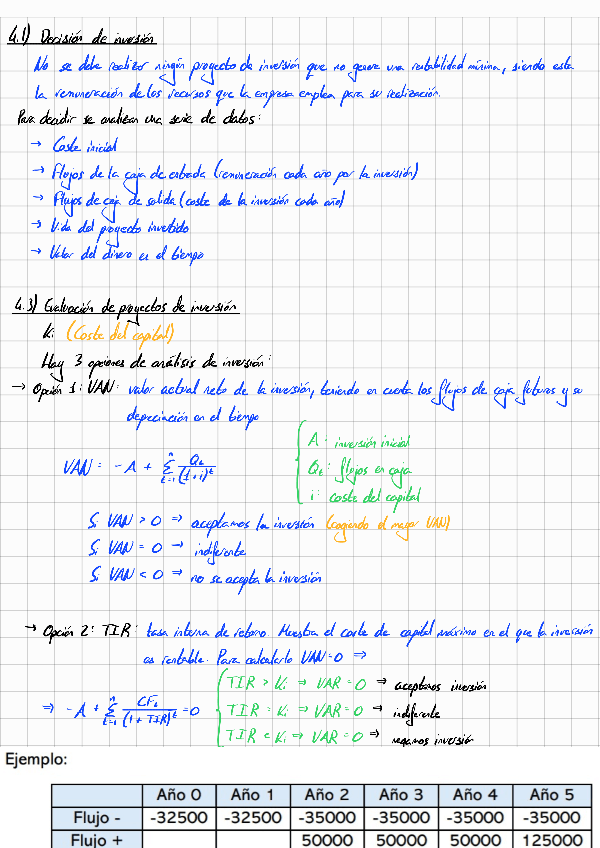 4.1) Decisión de inversión
No se debe realizar ningún proyecto de inversión que no genere una rentabilidad mínima, siendo esta
la remuneración de los recursos que la empresa emplea para su realización.
Para decidir se analizan una serie de datos:
→ Coste inicial
→ Flujos de la caja de entrada (remuneración cada año por la inversión)
→ Flujos de caja de salida (coste de la inversión cada año)
→ Vida del proyecto invertido
→ Valor del dinero en el tiempo
4.3) Evaluación de proyectos de inversión
Ki (Coste del capital)
Hay 3 opciones de análisis de inversión:
→ Opción 1: VAN: valor actual neto de la inversión, teniendo en cuenta los flujos de caja futuros y su
depreciación en el tiempo
VAN = -A + Σ_{t=1}^{n} Qt/(1+i)^t
A: inversión inicial
Qt: flujos en caja
i: coste del capital
Si VAN > 0 ⇒ aceptamos la inversión (cogiendo el mayor VAN)
Si VAN = 0 → indiferente
Si VAN < 0 ⇒ no se acepta la inversión
→ Opción 2: TIR: tasa interna de retorno. Muestra el coste de capital máximo en el que la inversión
es rentable. Para calcularlo VAN=0 ⇒
⇒ -A + Σ_{t=1}^{n} CFt/(1+TIR)^t = 0
TIR > Ki ⇒ VAR = 0 ⇒ aceptamos inversión
TIR = Ki ⇒ VAR = 0 ⇒ indiferente
TIR < Ki ⇒ VAR = 0 ⇒ negamos inversión
Ejemplo:
Año 0 Año 1 Año 2 Año 3 Año 4 Año 5
Flujo - -32500 -32500 -35000 -35000 -35000 -35000
Flujo + 50000 50000 50000 125000